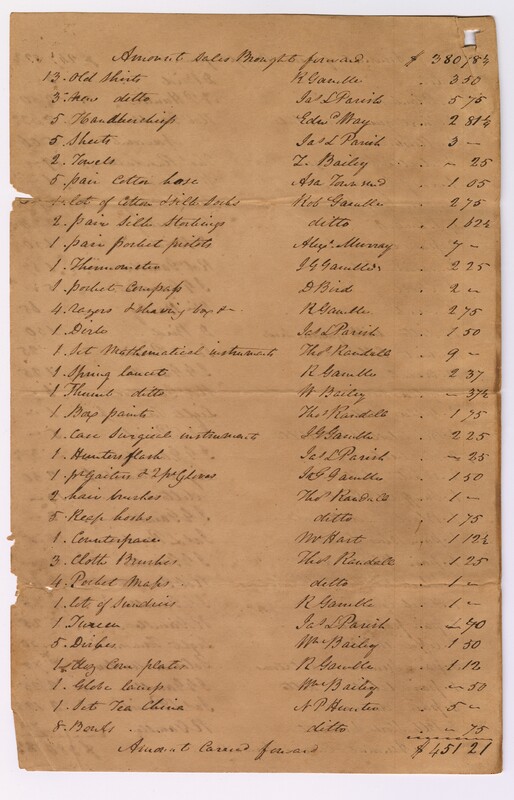 Amount Sales Brought forward $ 380 78¼
13. Old Shirts R Gamble . 3 50
3. New ditto Jas L Parish . 5 75
5 Handkerchiefs Edwd Way . 2 81¼
5. Sheets Jas L Parish . 3 –
2. Towels Z. Bailey . – 25
5. pair Cotton hose Asa Townsend . 1 05
1. lot of Cotton & silk Socks Rob Gamble . 2 75
2. pair Silk Stockings ditto . 1 62½
1. pair pocket pistols Alexr. Murray . 7 –
1. Thermometer J G Gamble . 2 25
1. pocket Compass D Bird . 2 –
4. razors & shaving box &c R Gamble . 2 75
1. Dirk Jas L Parish . 1 50
1. Set Mathematical instruments Thos Randall . 9 –
1. Spring lancet R Gamble . 2 37
1. Thumb ditto W Bailey . – 37½
1. Box paints Thos Randall . 1 75
1. Case Surgical instruments J G Gamble . 2 25
1. Hunters flask Jas L Parish . – 25
1. pr Gaiters & 2 pr Gloves J G Gamble . 1 50
2. hair brushes Thos Randall . 1 –
5. Reap hooks ditto . 1 75
1. Counterpane W Hart . 1 12½
3. Cloth Brushes Thos Randall . 1 25
4. Pocket Maps ditto . 1 –
1. lot of Sundries R Gamble . 1 –
1. Tureen Jas L Parish . 40
5. Dishes Wm Bailey . 1 50
1 doz Com plates R Gamble . 1 12
1. Globe lamp Wm Bailey . – 50
1. Set Tea China A P Hunter . 5 –
8. Books ditto . – 75
Amount Carried forward $ 451 21